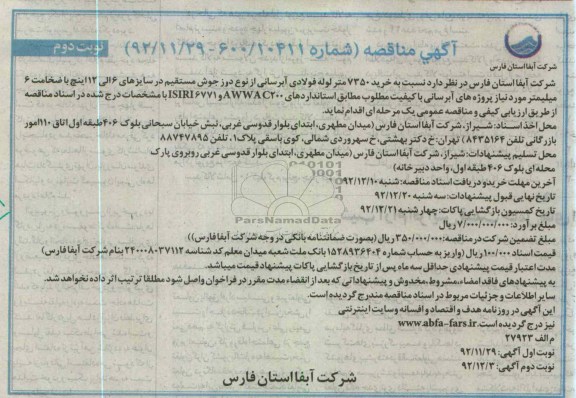 آگهي مناقصه (شماره ۶۰۰/۱۰۴۱۱-۹۲/۱۱/۲۹)
نوبت دوم
شرکت آبفا استان فارس
شرکت آبفا استان فارس در نظر دارد نسبت به خرید ۷۳۵۰ متر لوله فولادی آبرسانی از نوع درز جوش مستقیم در سایزهای ۶ الی ۱۲ اینچ با ضخامت ۶
میلیمتر مورد نیاز پروژه های آبرسانی با کیفیت مطلوب مطابق استانداردهای AWWA C۲۰۰ و ISIRI ۶۷۷۱ با مشخصات درج شده در اسناد مناقصه
از طریق ارزیابی کیفی و مناقصه عمومی یک مرحله ای اقدام نماید.
محل اخذ اسناد: شیراز، شرکت آبفا استان فارس (میدان مطهری، ابتدای بلوار قدوسی غربی، نبش خیابان سبحانی بلوک ۴۰۶ طبقه اول اتاق ۱۱۰ امور
بازرگانی تلفن ۸۴۳۵۱۶۴) تهران: خ دکتر بهشتی، خ سهروردی شمالی، کوی باسقی پلاک۱، تلفن ۸۸۷۴۷۸۹۵
محل تسلیم پیشنهادات: شیراز، شرکت آبفا استان فارس (میدان مطهری، ابتدای بلوار قدوسی غربی روبروی پارک
محله ای بلوک ۴۰۶ طبقه اول، واحد دبیرخانه)
آخرین مهلت خرید و دریافت اسناد مناقصه: شنبه ۹۲/۱۲/۱۰
تاریخ نهایی قبول پیشنهادات: سه شنبه ۹۲/۱۲/۲۰
تاریخ کمیسیون بازگشایی پاکات: چهار شنبه ۹۲/۱۲/۲۱
مبلغ برآورد: ۷/۰۰۰/۰۰۰/۰۰۰ ریال
مبلغ تضمین شرکت در مناقصه: ۳۵۰/۰۰۰/۰۰۰ ریال (بصورت ضمانتنامه بانکی در وجه شرکت آبفا فارس))
قیمت اسناد ۱۰۰/۰۰۰ ریال (واریز به حساب شماره ۱۵۲۸۹۳۶۴۰۴ بانک ملت شعبه میدان معلم کد شناسه ۲۴۰۰۰۸۰۳۷۱۱۲ بنام شرکت آبفا فارس)
مدت اعتبار قیمت پیشنهادی حداقل سه ماه پس از تاریخ بازگشایی پاکات پیشنهاد قیمت میباشد.
به پیشنهادهای فاقد امضاء، مشروط، مخدوش و پیشنهاداتی که بعد از انقضاء مدت مقرر در فراخوان واصل شود مطلقا ترتیب اثر داده نخواهد شد.
سایر اطلاعات و جزئیات مربوط در اسناد مناقصه مندرج گردیده است.
این آگهی در روزنامه هدف و اقتصاد و افسانه و سایت اینترنتی
نیز درج گردیده است. www.abfa-fars.ir
م الف ۲۷۹۲۳
نوبت اول آگهی: ۹۲/۱۱/۲۹
نوبت دوم آگهی: ۹۲/۱۲/۳
شرکت آبفا استان فارس
ParsNamadData